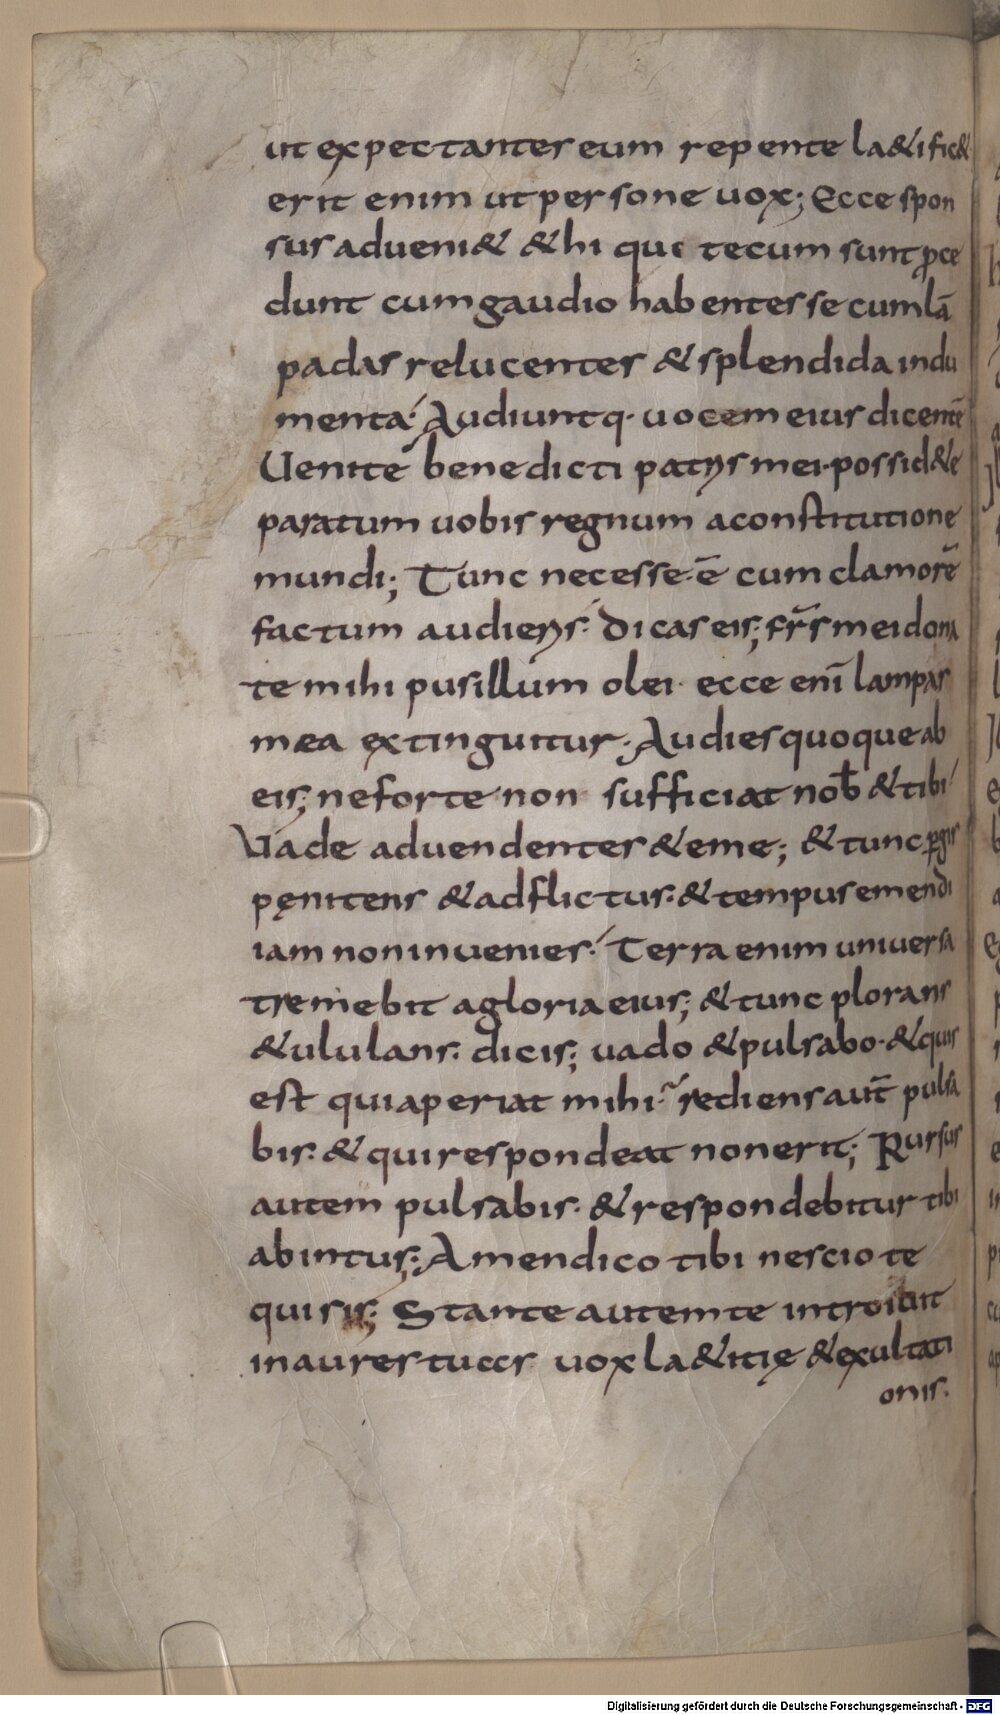 ut expectantes eum repente la&ific&
erit enim ut persone uox; Ecce spon
sus adueni& & hi qui tecum sunt p̄ce
dunt cum gaudio habentes se cum lā
padas relucentes & splendida indu
menta. Audiuntq· uocem eius dicentē
Uenite benedicti patris mei· possid&e
paratum uobis regnum a constitutione
mundi; Tunc necesse ē cum clamorē
factum audieris· Dicas eis; fr̄s mei dona
te mihi pusillum olei· ecce enī lampas
mea extinguitur· Audies quoque ab
eis; ne forte non sufficiat nob̄ & tibi
Uade ad uendentes & eme; & tunc p̄gis
pęnitens & adflictus· & tempus emendi
iam non inuenies· Terra enim uniuersa
tremebit a gloria eius; & tunc plorans
& ululans· dicis; uado & pulsabo· & quis
est qui aperiat mihi· rediens aut̄ pulsa
bis· & qui respondeat non erit; Rursus
autem pulsabis· & respondebitur tibi
ab intus; Amen dico tibi nescio te
qui sis; Stante autem te introibit
in aures tuas uox la&itię & exultati
onis·
Digitalisierung gefördert durch die Deutsche Forschungsgemeinschaft - DFG